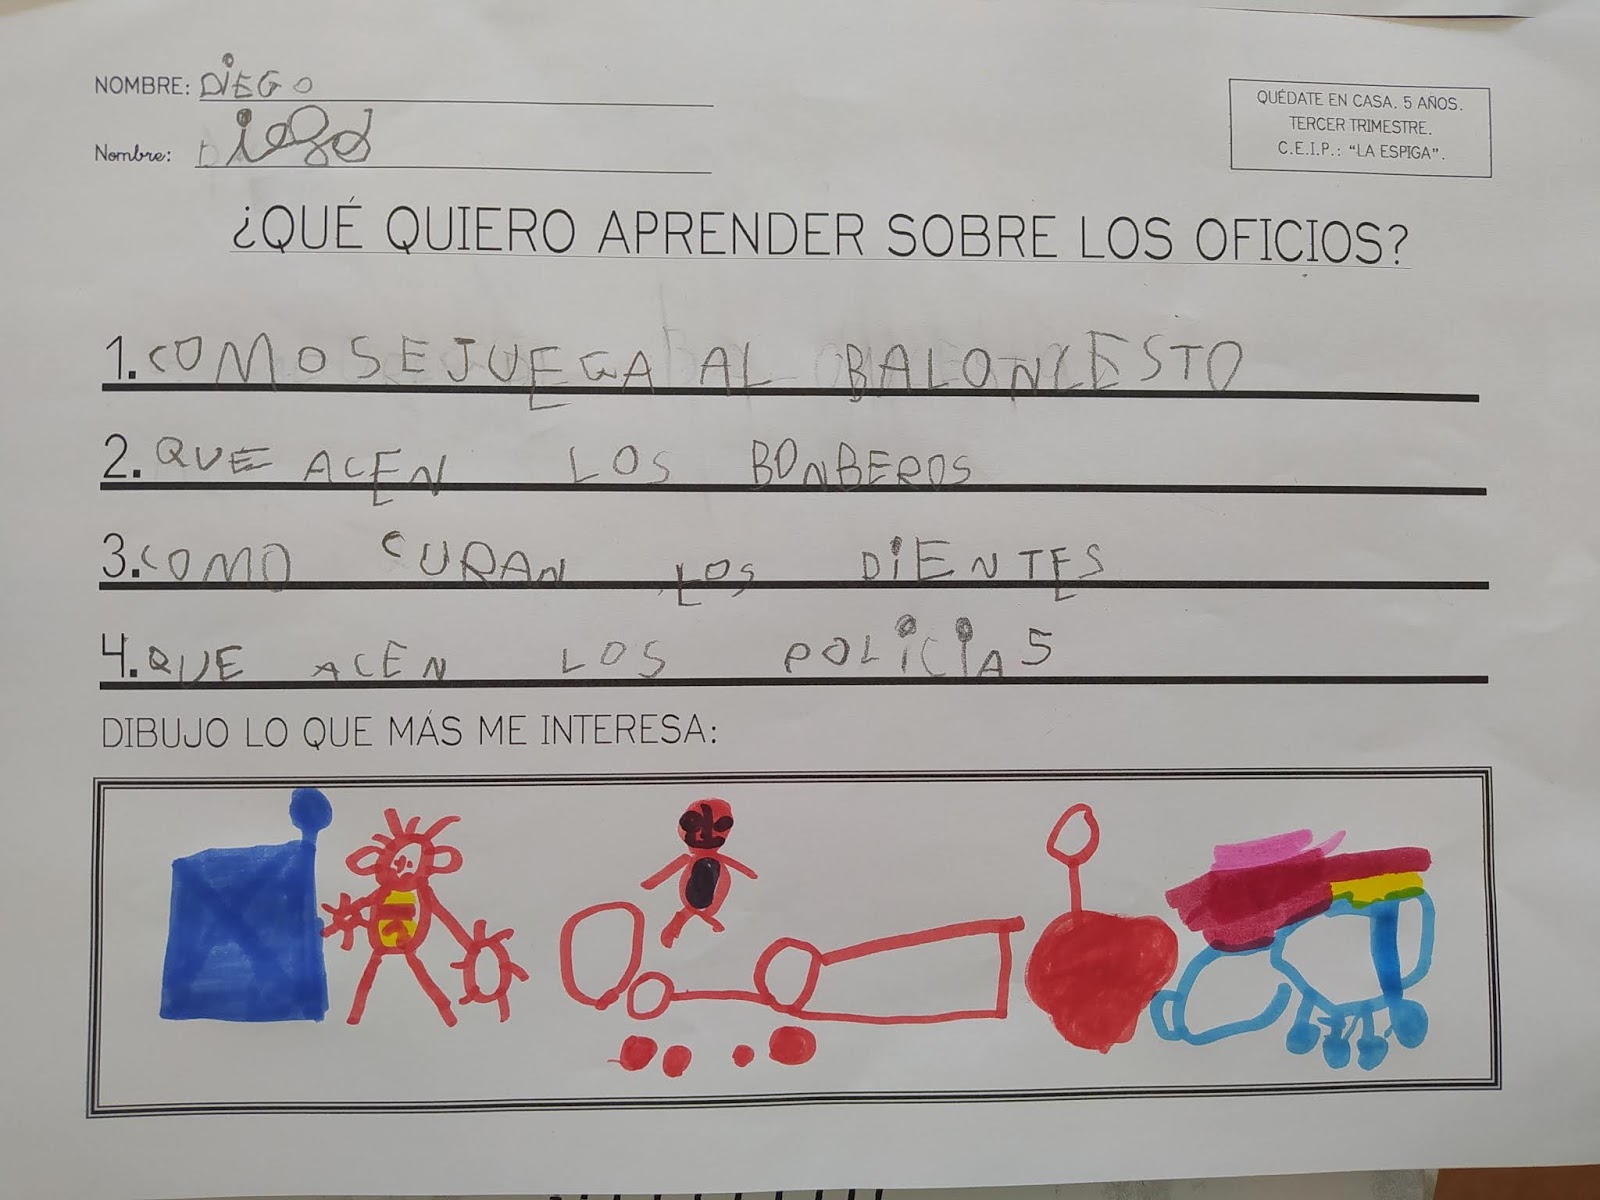 NOMBRE: DIEGO
Nombre: Diego
QUÉDATE EN CASA. 5 AÑOS.
TERCER TRIMESTRE.
C.E.I.P.: “LA ESPIGA”.
¿QUÉ QUIERO APRENDER SOBRE LOS OFICIOS?
1. COMO SE JUEGA AL BALONCESTO
2. QUE ACEN LOS BONBEROS
3. COMO CURAN LOS DIENTES
4. QUE ACEN LOS POLICIAS
DIBUJO LO QUE MÁS ME INTERESA: